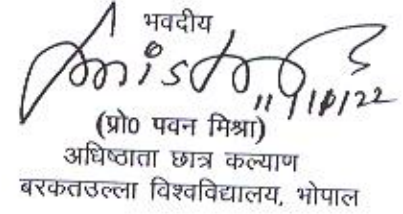 भवदीय
(प्रो0 पवन मिश्रा)
अधिष्ठाता छात्र कल्याण
बरकतउल्ला विश्वविद्यालय, भोपाल